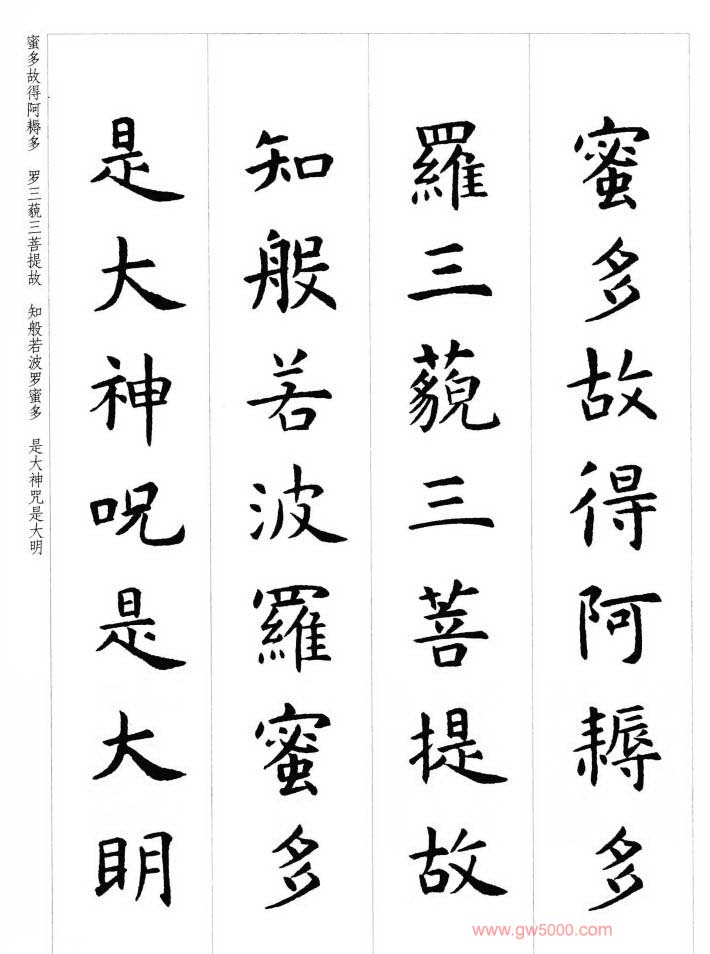 蜜多故得阿耨多
羅三藐三菩提故
知般若波羅蜜多
是大神呪是大明
蜜多故得阿耨多 罗三藐三菩提故 知般若波罗蜜多 是大神咒是大明
www.gw5000.com